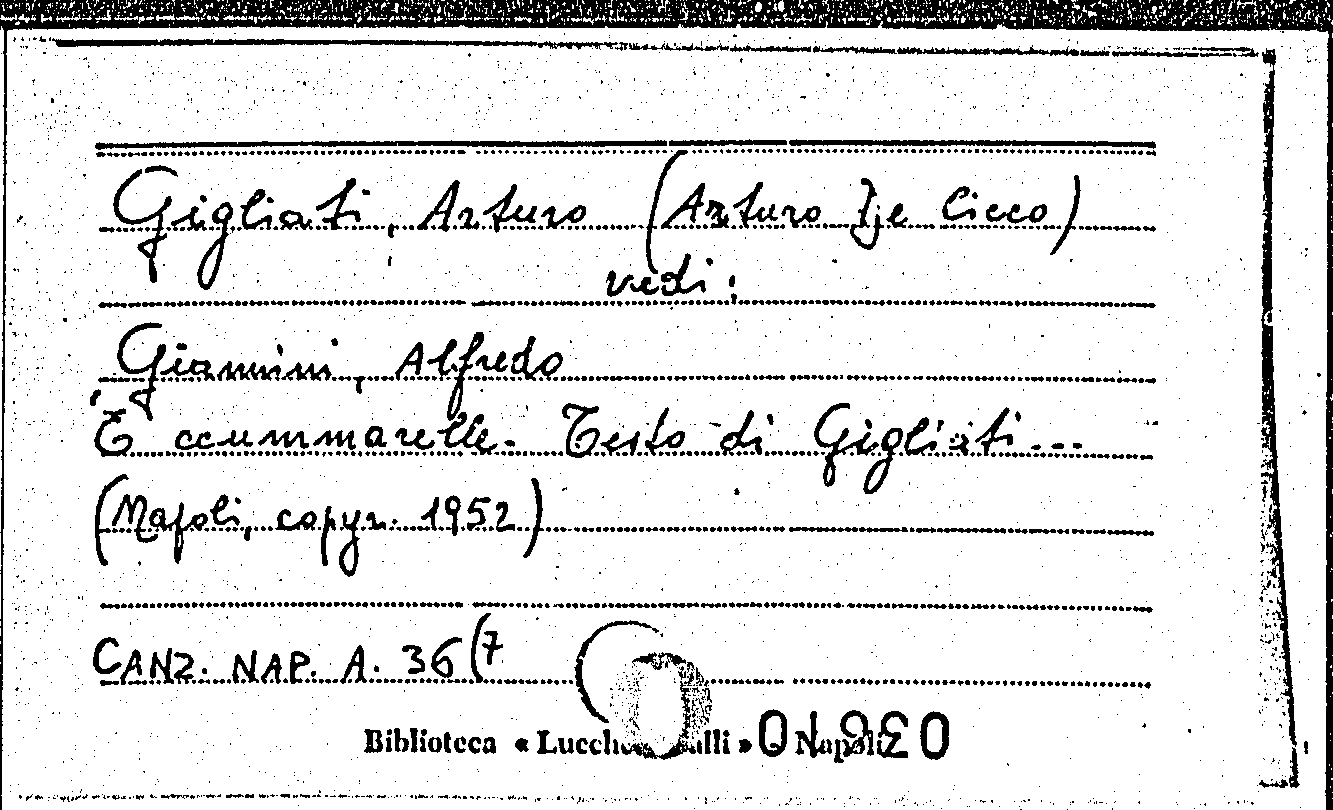 Gigliati, Arturo (Arturo De Cicco)
vedi:
Giannini, Alfredo
'E ccummarelle. Testo di Gigliati...
(Napoli, copyr. 1952)
CANZ. NAP. A. 36(7
Biblioteca « » Napoli